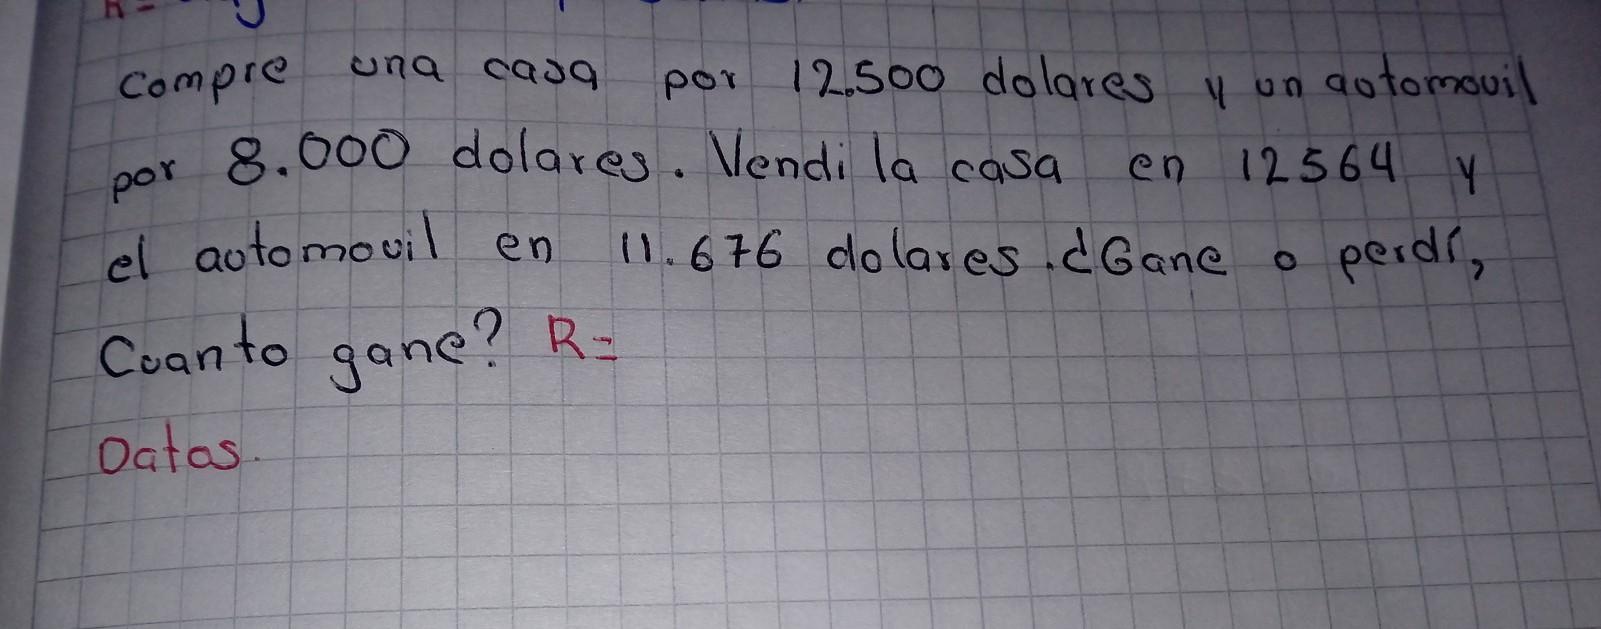 compre una casa por 12.500 dolares y un automovil
por 8.000 dolares. Vendi la casa en 12564 y
el automovil en 11.676 dolares. ¿Gane o perdí,
Cuanto gane? R=
Datos.